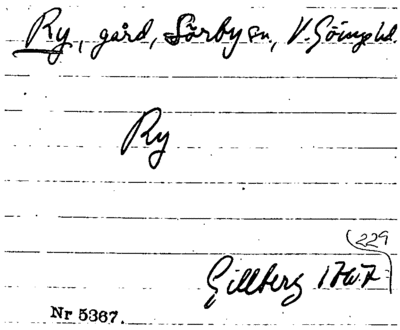 Ry, gård, Sörby sn, V. Göinge hd.
Ry
(229
Gillberg 1767
Nr 5367.